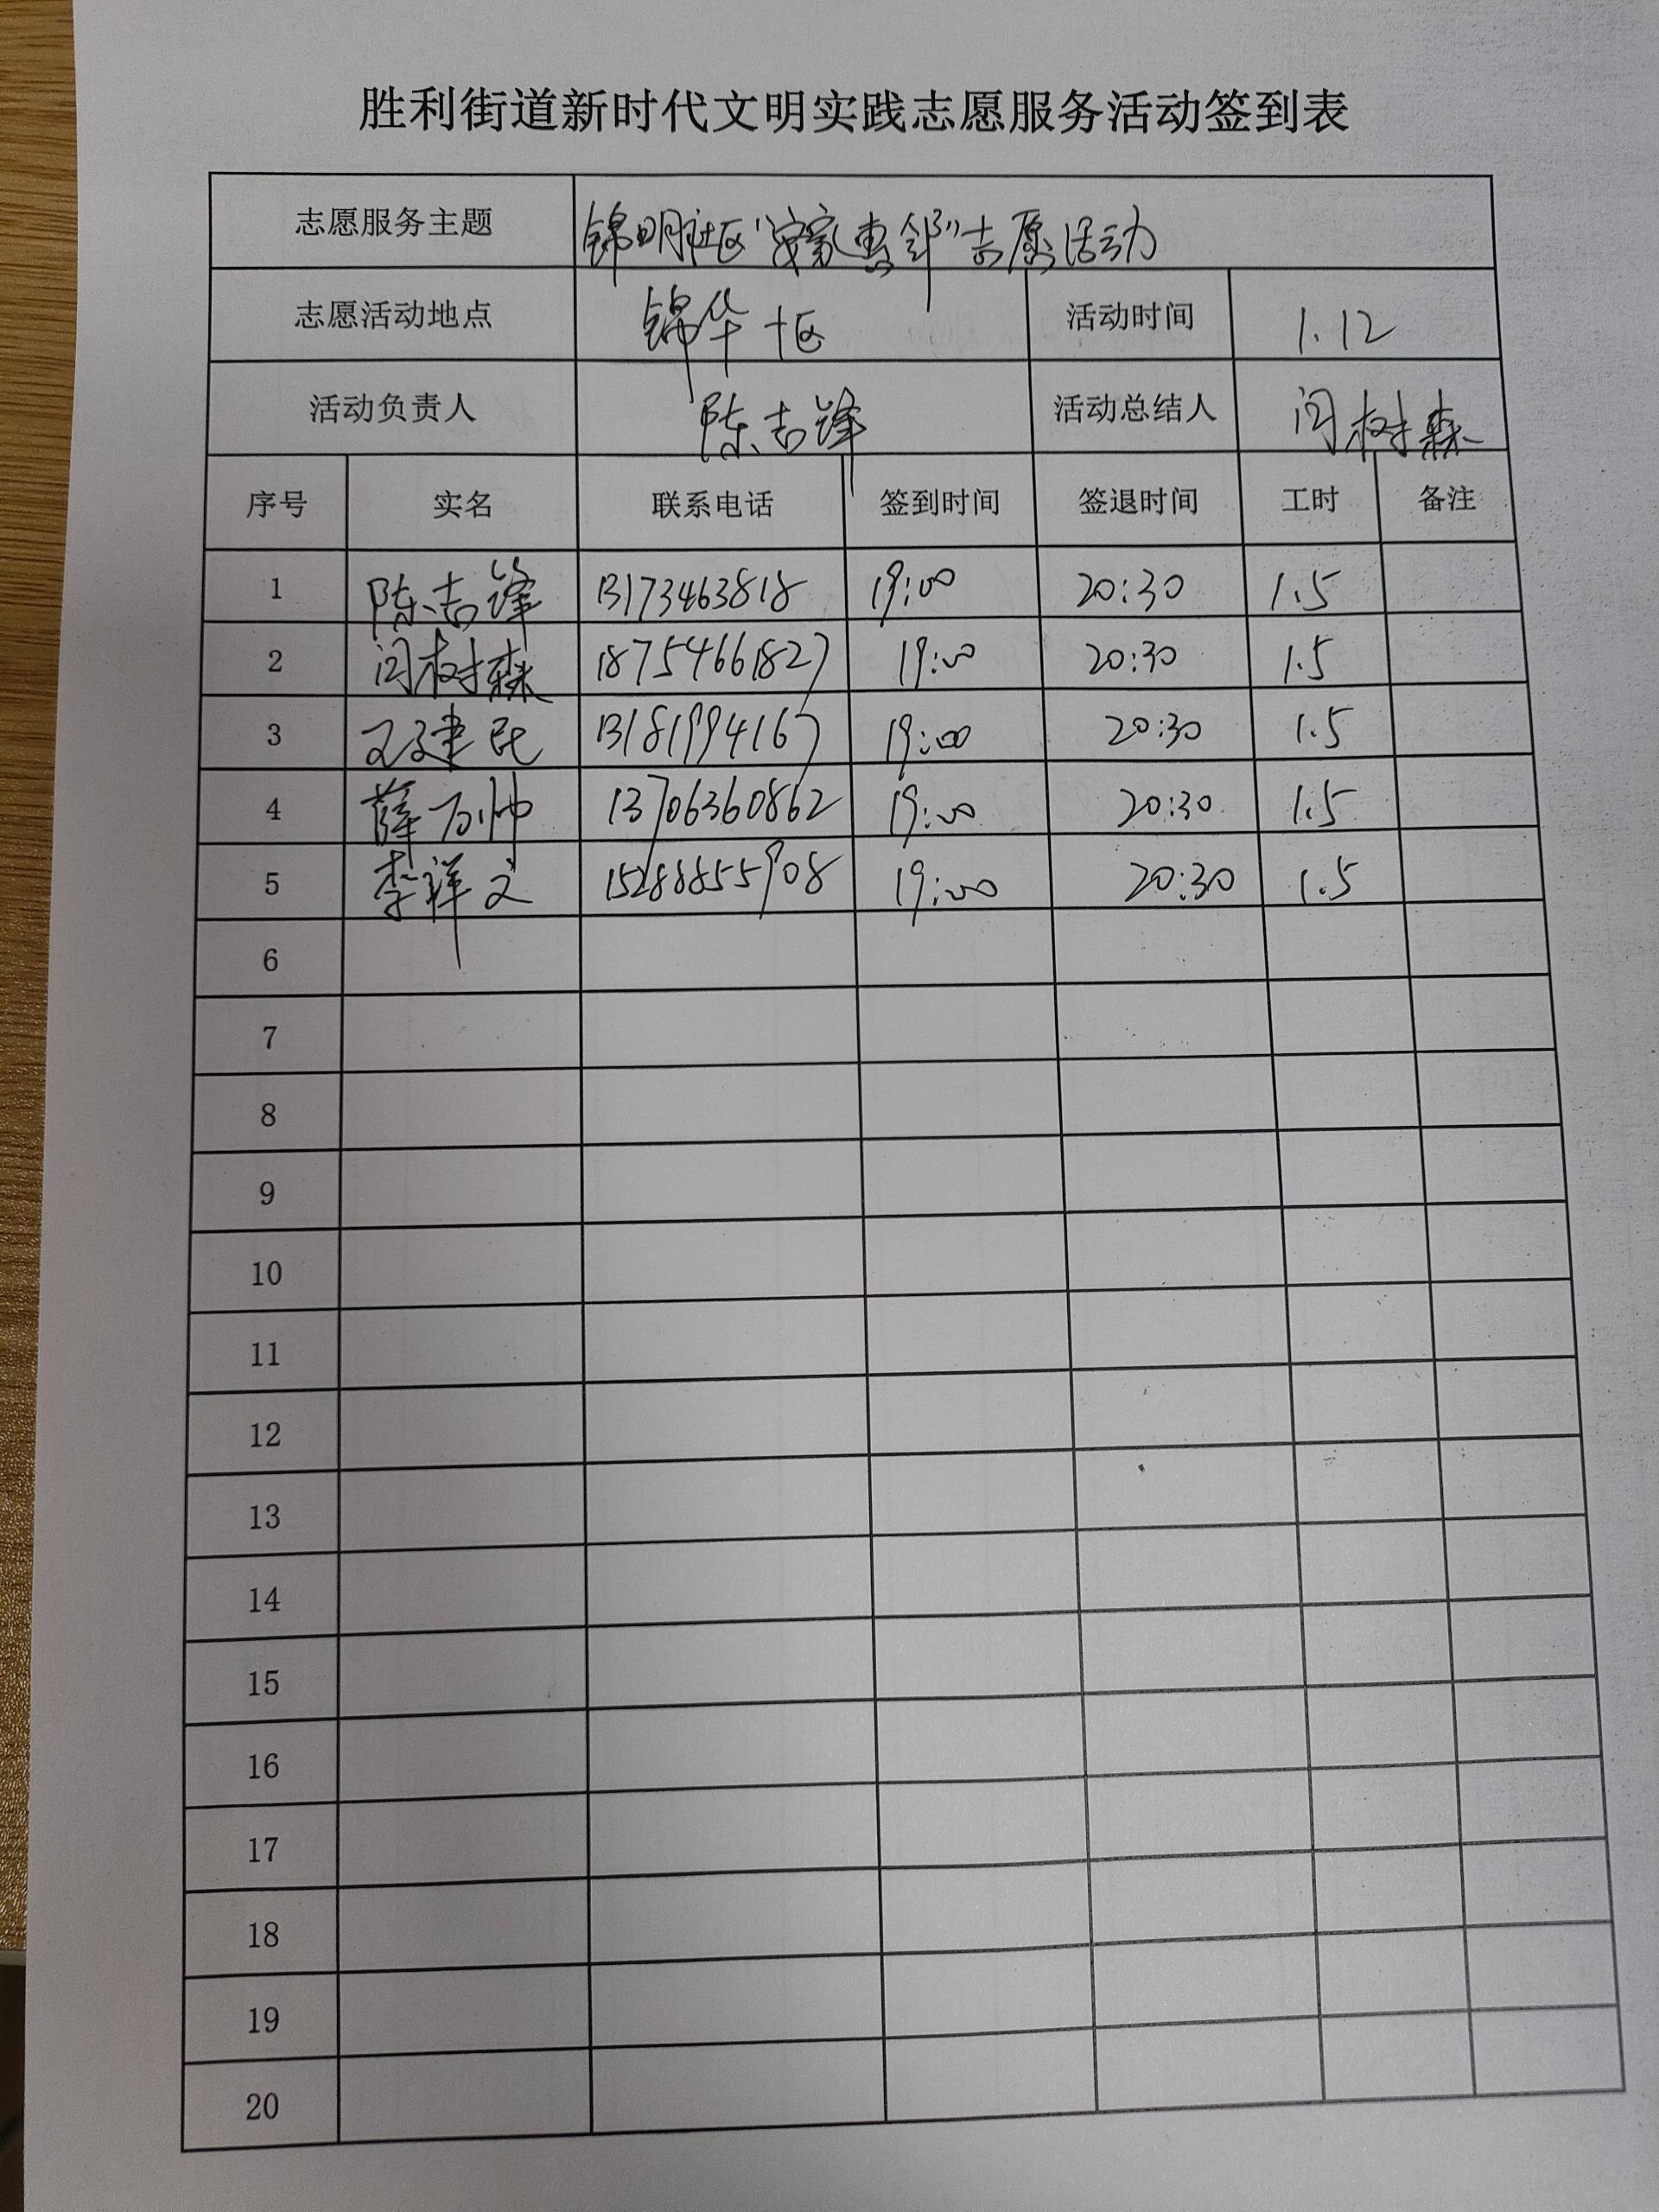 胜利街道新时代文明实践志愿服务活动签到表
志愿服务主题 锦明社区"安家惠邻"志愿活动
志愿活动地点 锦华十区 活动时间 1.12
活动负责人 陈志锋 活动总结人 闫树森
序号 实名 联系电话 签到时间 签退时间 工时 备注
1 陈志锋 13173463818 19:00 20:30 1.5
2 闫树森 18754661827 19:00 20:30 1.5
3 王建民 13181994167 19:00 20:30 1.5
4 薛万帅 13706360862 19:00 20:30 1.5
5 李祥文 15288855908 19:00 20:30 1.5
6
7
8
9
10
11
12
13
14
15
16
17
18
19
20